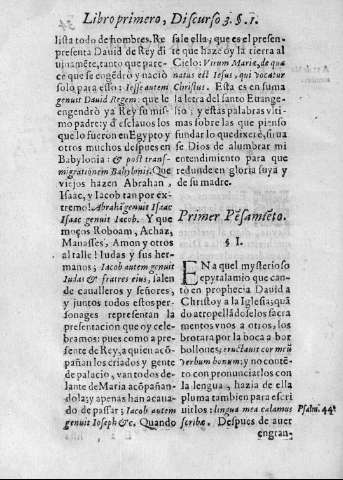 Libro primero, Discurso 3. §. 1.
lista todo de hombres. Re
presenta Dauid de Rey di
uinamẽte, tanto que pare-
ce que se engẽdrò y naciò
solo para esso: Iesse autem
genuit Dauid Regem: que le
engendrò ya Rey su mis-
mo padre: y dẽ esclauos los
que lo fueron en Egypto y
otros muchos despues en
Babylonia: & post trans-
migrationem Babylonis. Que
viejos hazen Abrahan,
Isaac, y Iacob tan por ex-
tremo! Abrahã genuit Isaac
Isaac genuit Iacob. Y que
moços Roboam, Achaz,
Manasses, Amon y otros
al talle! Iudas y sus her-
manos; Iacob autem genuit
Iudas & fratres eius, salen
de caualleros y señores,
y juntos todos estos per-
sonages representan la
presentacion que oy cele-
bramos: pues como a pre-
sente de Rey, a quien acõ-
pañan los criados y gente
de palacio, van todos de-
lante de Maria acõpañan-
dola; y apenas han acaua-
do de passar; Iacob autem
genuit Ioseph &c. Quando
sale ella, que es el presen-
te que haze oy la tierra al
Cielo: Virum Mariæ, de qua
natus est Iesus, qui vocatur
Christus. Esta es en suma
la letra del santo Euange-
lio; y estas palabras vlti-
mas sobre las que pienso
fundar lo que dixere, si usa
se Dios de alumbrar mi
entendimiento para que
redunde en gloria suya y
de su madre.
Primer Pẽsamiẽto.
§ I.
EN aquel mysterioso
epytalamio que can-
tò en prophecia Dauid a
Christo y a la Iglesia; quã
do atropellãdose los sacra
mentos vnos a otros, los
brotara por la boca a bor
bollones; eructauit cor meũ
verbum bonum; y no contẽ-
to con pronunciarlos con
la lengua, hazia de ella
pluma tambien para escri
uirlos: lingua mea calamus
scribæ. Despues de auer
Psalm. 44.
engran-